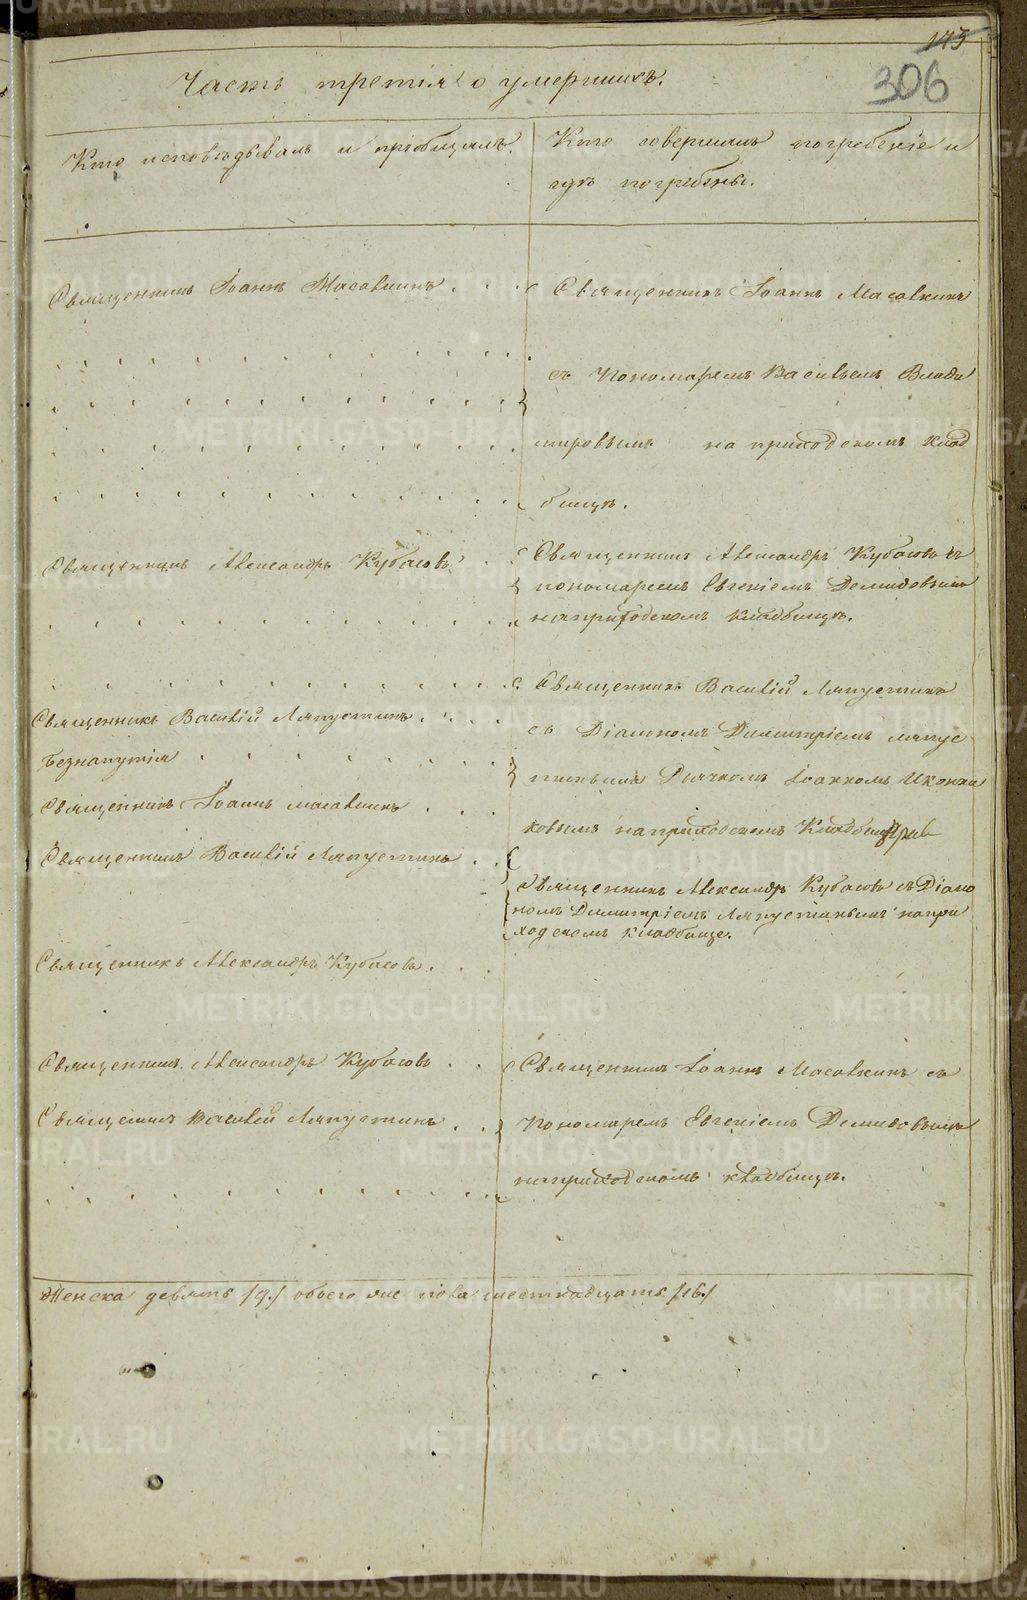 143
306
Часть третія о умершихъ.
Кто исповѣдывалъ и пріобщалъ.
Кто совершилъ погребеніе и
гдѣ погребены.
Священникъ Іоаннъ Масалкинъ
Священникъ Іоаннъ Масалкинъ
съ Пономаремъ Васильемъ Влади
мировымъ на приходскомъ клад
бищѣ.
Священникъ Александръ Кубасовъ
Священникъ Александръ Кубасовъ съ
пономаремъ Евгеніемъ Демидовымъ
на приходскомъ кладбищѣ.
Священникъ Василій Ляпустинъ
Священникъ Василій Ляпустинъ
съ Діакономъ Димитріемъ Ляпус
Безнапутія
тинымъ Дьячкомъ Іоанномъ Иконни
Священникъ Іоаннъ Масалкинъ
ковымъ на приходскомъ Кладбищѣ
Священникъ Василій Ляпустинъ
Священникъ Александръ Кубасовъ съ Діако
номъ Димитріемъ Ляпустинымъ на при
ходскомъ кладбище.
Священникъ Александръ Кубасовъ.
Священникъ Александръ Кубасовъ
Священникъ Іоаннъ Масалкинъ съ
Священникъ Василій Ляпустинъ
Пономаремъ Евгеніемъ Демидовымъ
на приходскомъ кладбищѣ.
Женска девять /9./ обоего же пола шестнадцать /16./
METRIKI.GASO-URAL.RU